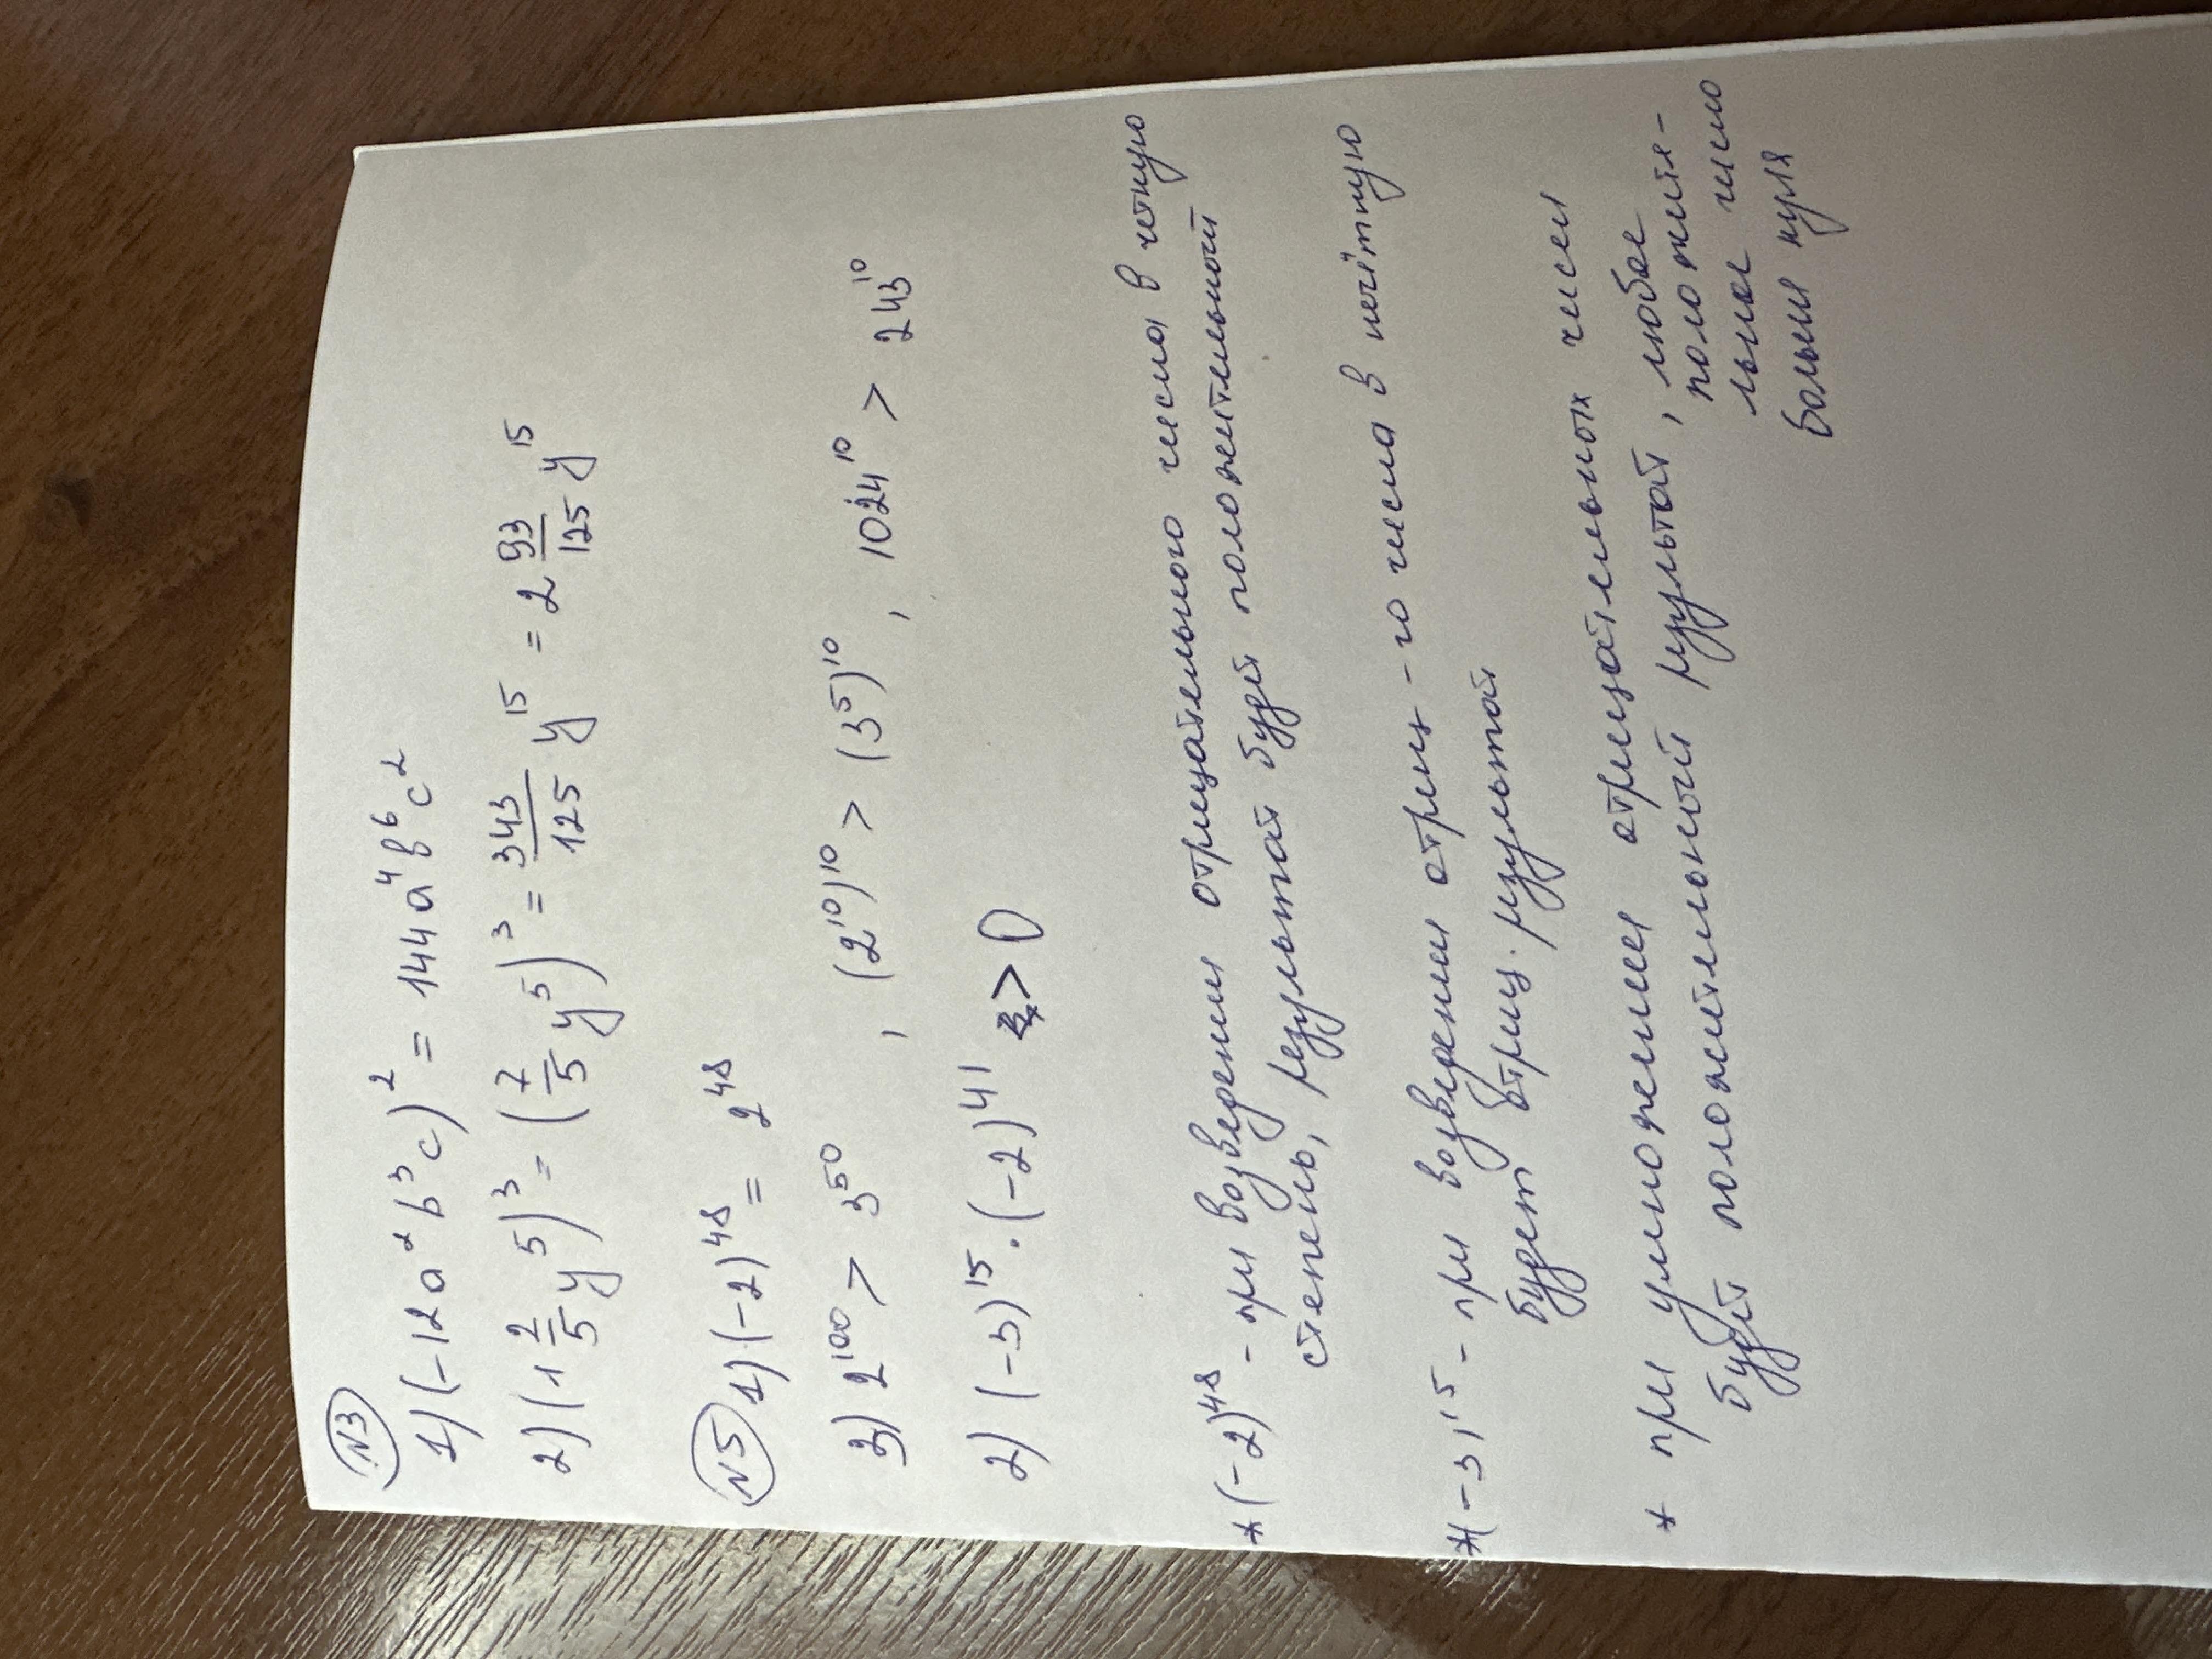 N3
1) (-12a²b³c)² = 144a⁴b⁶c²
2) (1 2/5 y⁵)³ = (7/5 y⁵)³ = 343/125 y¹⁵ = 2 93/125 y¹⁵
N5 1) (-2)⁴⁸ = 2⁴⁸
3) 2¹⁰⁰ > 3⁵⁰ , (2¹⁰)¹⁰ > (3⁵)¹⁰ , 1024¹⁰ > 243¹⁰
2) (-3)¹⁵ · (-2)⁴¹ > 0
* (-2)⁴⁸ - при возведении отрицательного числа в четную
степень, результат будет положительный
* (-3)¹⁵ - при возведении отриц-го числа в нечётную
будет отриц. результат
* при умножении отрицательных чисел
будет положительный результат, любое
положите-
льное число
больше нуля